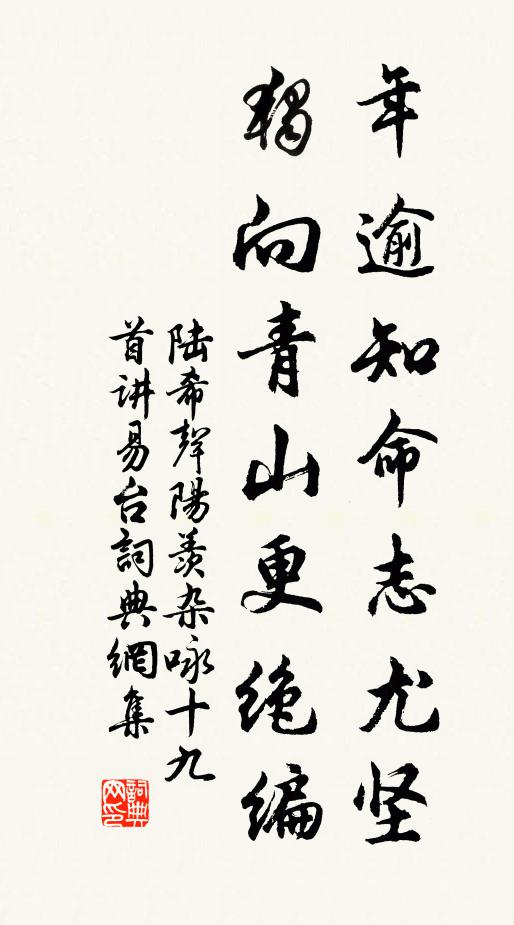 年逾知命志尤坚
獨向青山更绝编
陆希聲陽羡杂咏十九
首讲易台詞典網集
詞典網印